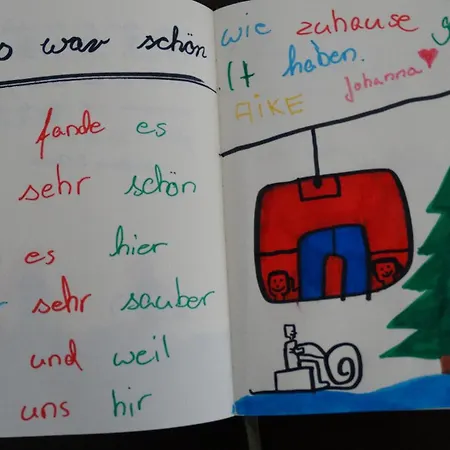 s war schön
fande es
sehr schön
es hier
sehr sauber
und weil
uns hir
wie zuhause g
lt haben.
AIKE Johanna